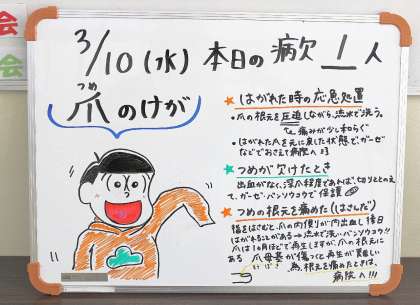 3/10(水) 本日の病欠 1 人
つめ
爪のけが
★はがれた時の応急処置
・爪の根元を圧迫しながら、流水で洗う。
痛みが少し和らぐ
・はがれた爪を元に戻した状態で、ガーゼ
などでおさえて病院へ
★つめが欠けたとき
出血がなく、深爪程度であれば、切りととのえ
て、ガーゼ・バンソウコウで保護
★つめの根元を痛めた(はさんだ)
指をはさむと、爪の内側が内出血し、後日
はがれることがある→流水で洗い、バンソウコウ!!
爪は10月ほどで再生しますが、爪の根元に
ある 爪母基が傷つくと再生が難しい
為、根元を痛めたときは、
病院へ!!!
会
会